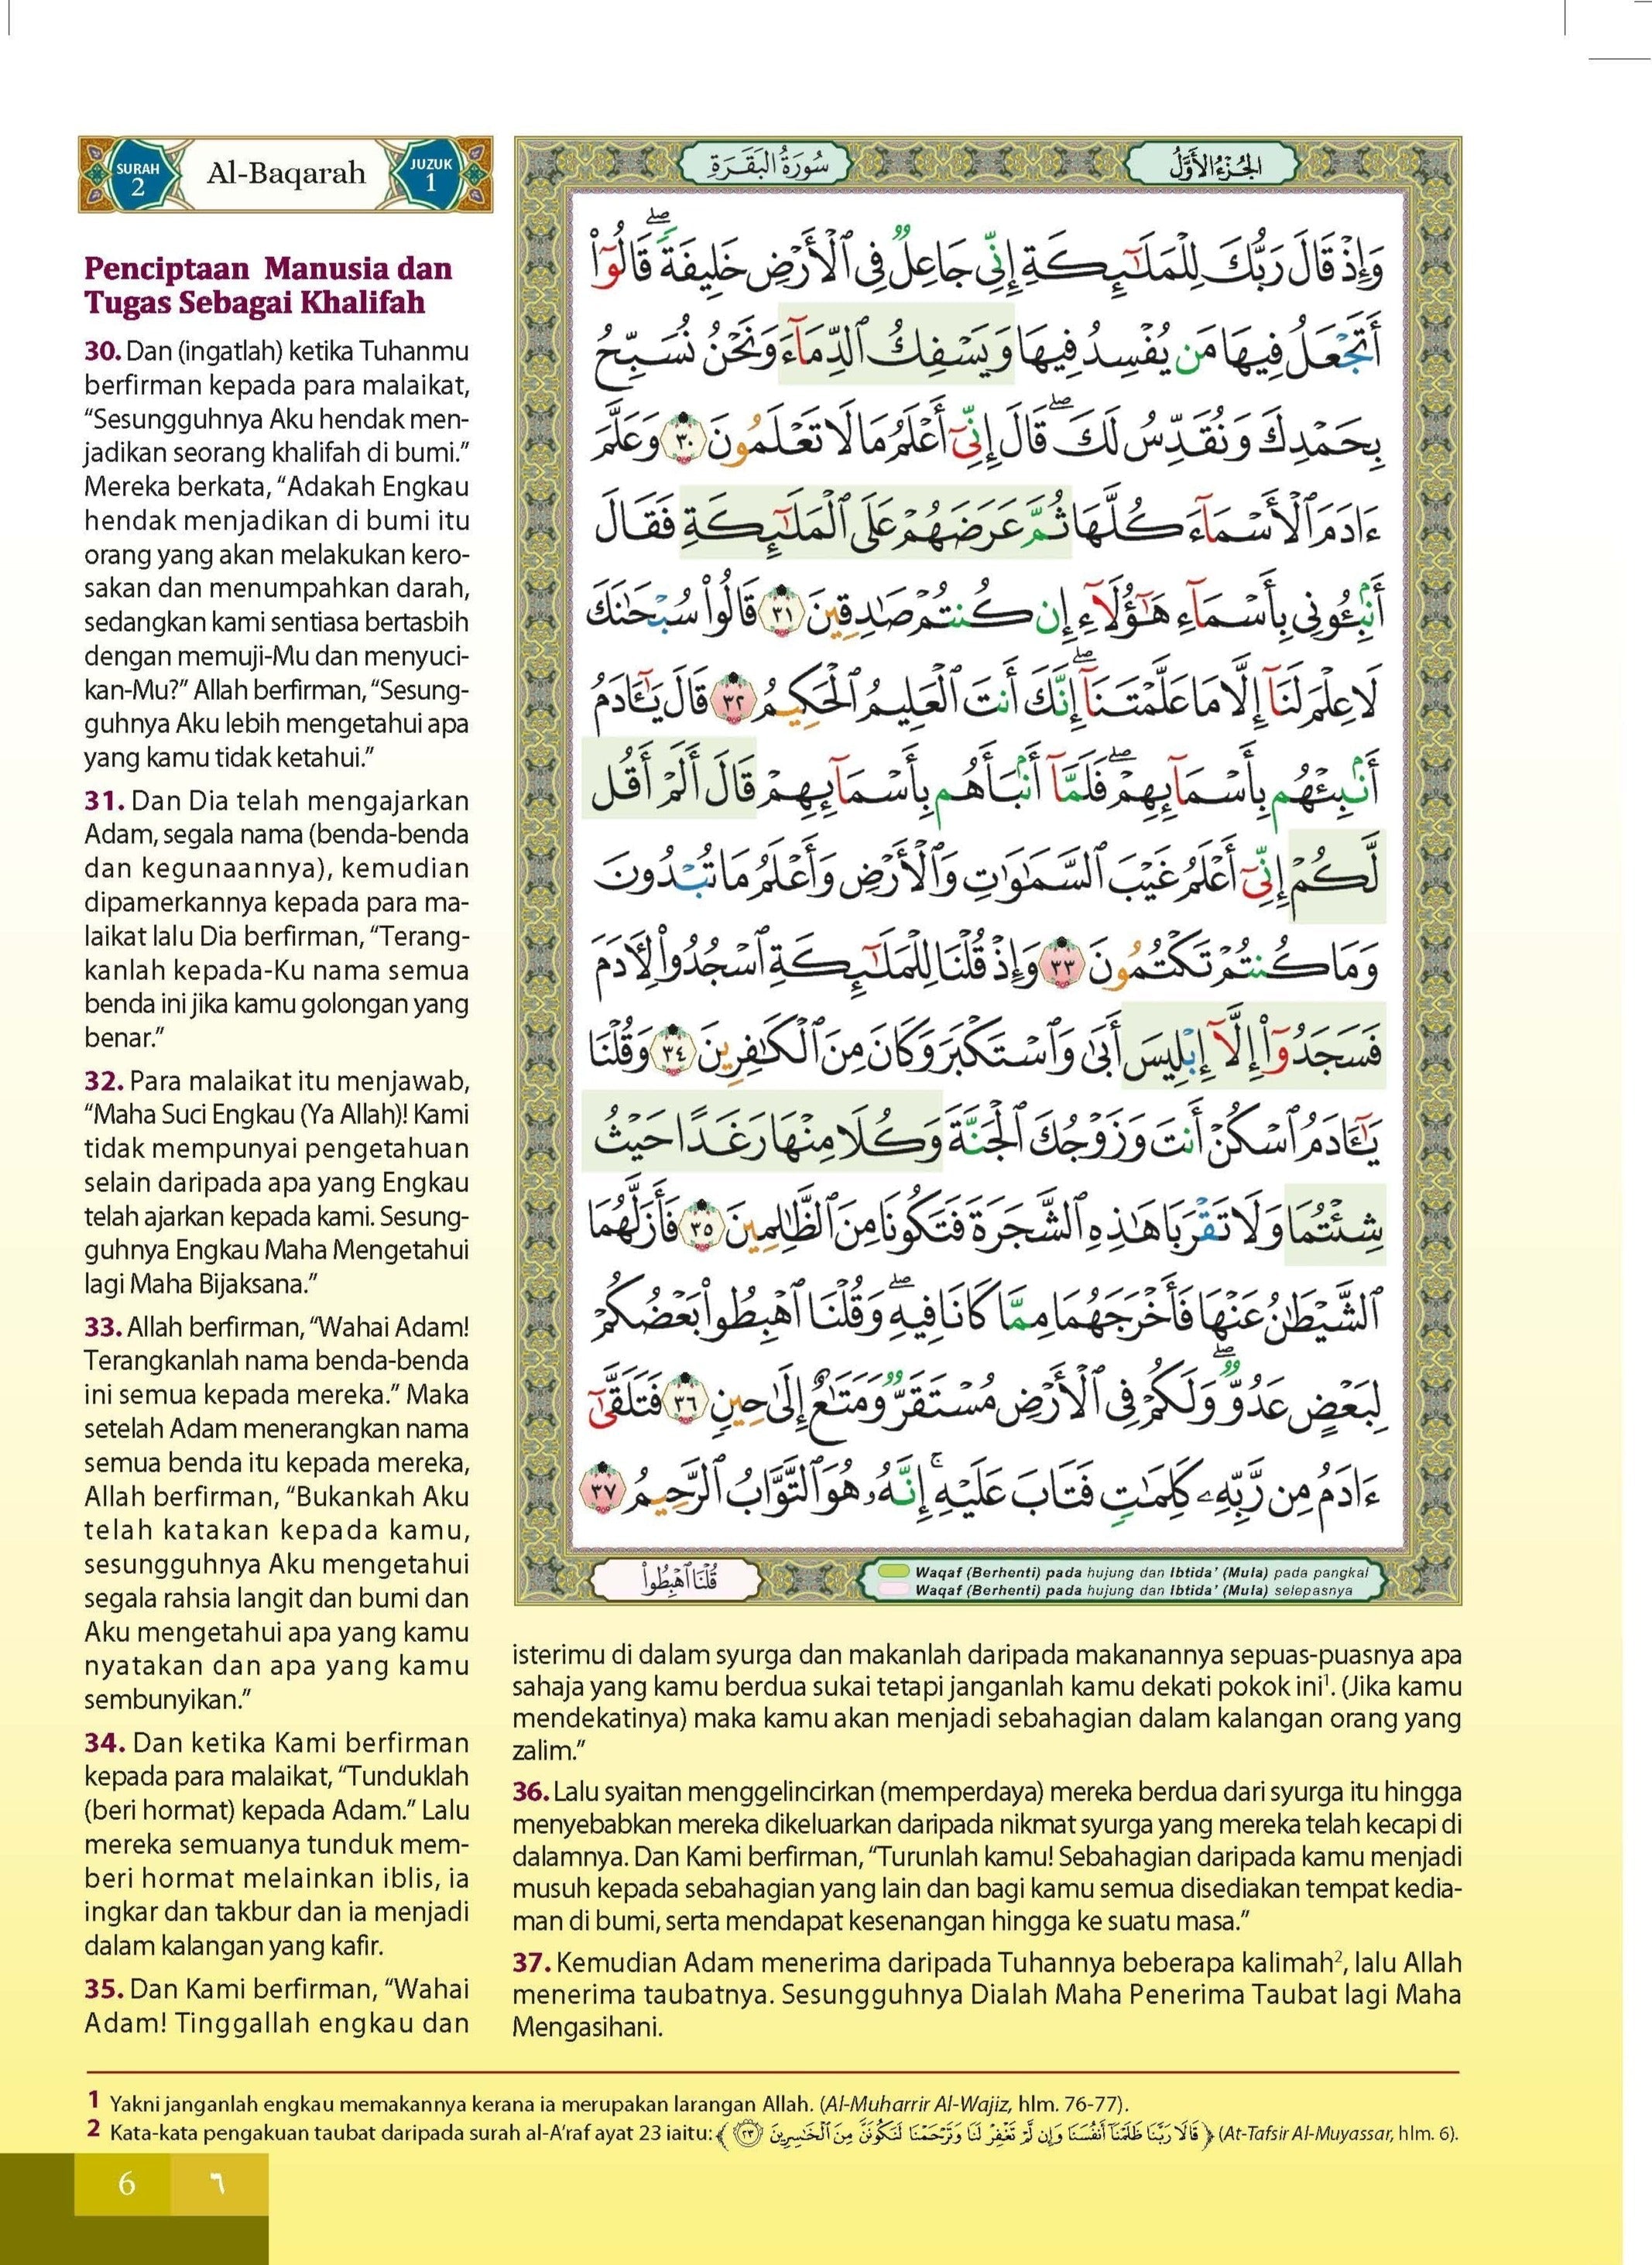 SURAH 2
Al-Baqarah
JUZUK 1
سُورَةُ البَقَرَةِ
الجُزْءُ الأَوَّلُ
Penciptaan Manusia dan
Tugas Sebagai Khalifah
30. Dan (ingatlah) ketika Tuhanmu
berfirman kepada para malaikat,
“Sesungguhnya Aku hendak men-
jadikan seorang khalifah di bumi.”
Mereka berkata, “Adakah Engkau
hendak menjadikan di bumi itu
orang yang akan melakukan kero-
sakan dan menumpahkan darah,
sedangkan kami sentiasa bertasbih
dengan memuji-Mu dan menyuci-
kan-Mu?” Allah berfirman, “Sesung-
guhnya Aku lebih mengetahui apa
yang kamu tidak ketahui.”
31. Dan Dia telah mengajarkan
Adam, segala nama (benda-benda
dan kegunaannya), kemudian
dipamerkannya kepada para ma-
laikat lalu Dia berfirman, “Terang-
kanlah kepada-Ku nama semua
benda ini jika kamu golongan yang
benar.”
32. Para malaikat itu menjawab,
“Maha Suci Engkau (Ya Allah)! Kami
tidak mempunyai pengetahuan
selain daripada apa yang Engkau
telah ajarkan kepada kami. Sesung-
guhnya Engkau Maha Mengetahui
lagi Maha Bijaksana.”
33. Allah berfirman, “Wahai Adam!
Terangkanlah nama benda-benda
ini semua kepada mereka.” Maka
setelah Adam menerangkan nama
semua benda itu kepada mereka,
Allah berfirman, “Bukankah Aku
telah katakan kepada kamu,
sesungguhnya Aku mengetahui
segala rahsia langit dan bumi dan
Aku mengetahui apa yang kamu
nyatakan dan apa yang kamu
sembunyikan.”
34. Dan ketika Kami berfirman
kepada para malaikat, “Tunduklah
(beri hormat) kepada Adam.” Lalu
mereka semuanya tunduk mem-
beri hormat melainkan iblis, ia
ingkar dan takbur dan ia menjadi
dalam kalangan yang kafir.
35. Dan Kami berfirman, “Wahai
Adam! Tinggallah engkau dan
وَإِذْ قَالَ رَبُّكَ لِلْمَلَـٰٓئِكَةِ إِنِّي جَاعِلٌ فِي ٱلْأَرْضِ خَلِيفَةً ۖ قَالُوٓا۟
أَتَجْعَلُ فِيهَا مَن يُفْسِدُ فِيهَا وَيَسْفِكُ ٱلدِّمَآءَ وَنَحْنُ نُسَبِّحُ
بِحَمْدِكَ وَنُقَدِّسُ لَكَ ۖ قَالَ إِنِّيٓ أَعْلَمُ مَا لَا تَعْلَمُونَ ٣٠ وَعَلَّمَ
ءَادَمَ ٱلْأَسْمَآءَ كُلَّهَا ثُمَّ عَرَضَهُمْ عَلَى ٱلْمَلَـٰٓئِكَةِ فَقَالَ
أَنۢبِـُٔونِي بِأَسْمَآءِ هَـٰٓؤُلَآءِ إِن كُنتُمْ صَـٰدِقِينَ ٣١ قَالُوا۟ سُبْحَـٰنَكَ
لَا عِلْمَ لَنَآ إِلَّا مَا عَلَّمْتَنَآ ۖ إِنَّكَ أَنتَ ٱلْعَلِيمُ ٱلْحَكِيمُ ٣٢ قَالَ يَـٰٓـَٔادَمُ
أَنۢبِئْهُم بِأَسْمَآئِهِمْ ۖ فَلَمَّآ أَنۢبَأَهُم بِأَسْمَآئِهِمْ قَالَ أَلَمْ أَقُل
لَّكُمْ إِنِّيٓ أَعْلَمُ غَيْبَ ٱلسَّمَـٰوَٰتِ وَٱلْأَرْضِ وَأَعْلَمُ مَا تُبْدُونَ
وَمَا كُنتُمْ تَكْتُمُونَ ٣٣ وَإِذْ قُلْنَا لِلْمَلَـٰٓئِكَةِ ٱسْجُدُوا۟ لِـَٔادَمَ
فَسَجَدُوٓا۟ إِلَّآ إِبْلِيسَ أَبَىٰ وَٱسْتَكْبَرَ وَكَانَ مِنَ ٱلْكَـٰفِرِينَ ٣٤ وَقُلْنَا
يَـٰٓـَٔادَمُ ٱسْكُنْ أَنتَ وَزَوْجُكَ ٱلْجَنَّةَ وَكُلَا مِنْهَا رَغَدًا حَيْثُ
شِئْتُمَا وَلَا تَقْرَبَا هَـٰذِهِ ٱلشَّجَرَةَ فَتَكُونَا مِنَ ٱلظَّـٰلِمِينَ ٣٥ فَأَزَلَّهُمَا
ٱلشَّيْطَـٰنُ عَنْهَا فَأَخْرَجَهُمَا مِمَّا كَانَا فِيهِ ۖ وَقُلْنَا ٱهْبِطُوا۟ بَعْضُكُمْ
لِبَعْضٍ عَدُوٌّ ۖ وَلَكُمْ فِي ٱلْأَرْضِ مُسْتَقَرٌّ وَمَتَـٰعٌ إِلَىٰ حِينٍ ٣٦ فَتَلَقَّىٰٓ
ءَادَمُ مِن رَّبِّهِۦ كَلِمَـٰتٍ فَتَابَ عَلَيْهِ ۚ إِنَّهُۥ هُوَ ٱلتَّوَّابُ ٱلرَّحِيمُ ٣٧
قُلْنَا ٱهْبِطُوا۟
Waqaf (Berhenti) pada hujung dan Ibtida’ (Mula) pada pangkal
Waqaf (Berhenti) pada hujung dan Ibtida’ (Mula) selepasnya
isterimu di dalam syurga dan makanlah daripada makanannya sepuas-puasnya apa
sahaja yang kamu berdua sukai tetapi janganlah kamu dekati pokok ini¹. (Jika kamu
mendekatinya) maka kamu akan menjadi sebahagian dalam kalangan orang yang
zalim.”
36. Lalu syaitan menggelincirkan (memperdaya) mereka berdua dari syurga itu hingga
menyebabkan mereka dikeluarkan daripada nikmat syurga yang mereka telah kecapi di
dalamnya. Dan Kami berfirman, “Turunlah kamu! Sebahagian daripada kamu menjadi
musuh kepada sebahagian yang lain dan bagi kamu semua disediakan tempat kedia-
man di bumi, serta mendapat kesenangan hingga ke suatu masa.”
37. Kemudian Adam menerima daripada Tuhannya beberapa kalimah², lalu Allah
menerima taubatnya. Sesungguhnya Dialah Maha Penerima Taubat lagi Maha
Mengasihani.
1 Yakni janganlah engkau memakannya kerana ia merupakan larangan Allah. (Al-Muharrir Al-Wajiz, hlm. 76-77).
2 Kata-kata pengakuan taubat daripada surah al-A’raf ayat 23 iaitu: ﴿ قَالَا رَبَّنَا ظَلَمْنَآ أَنفُسَنَا وَإِن لَّمْ تَغْفِرْ لَنَا وَتَرْحَمْنَا لَنَكُونَنَّ مِنَ ٱلْخَـٰسِرِينَ ٢٣ ﴾ (At-Tafsir Al-Muyassar, hlm. 6).
6 ٦